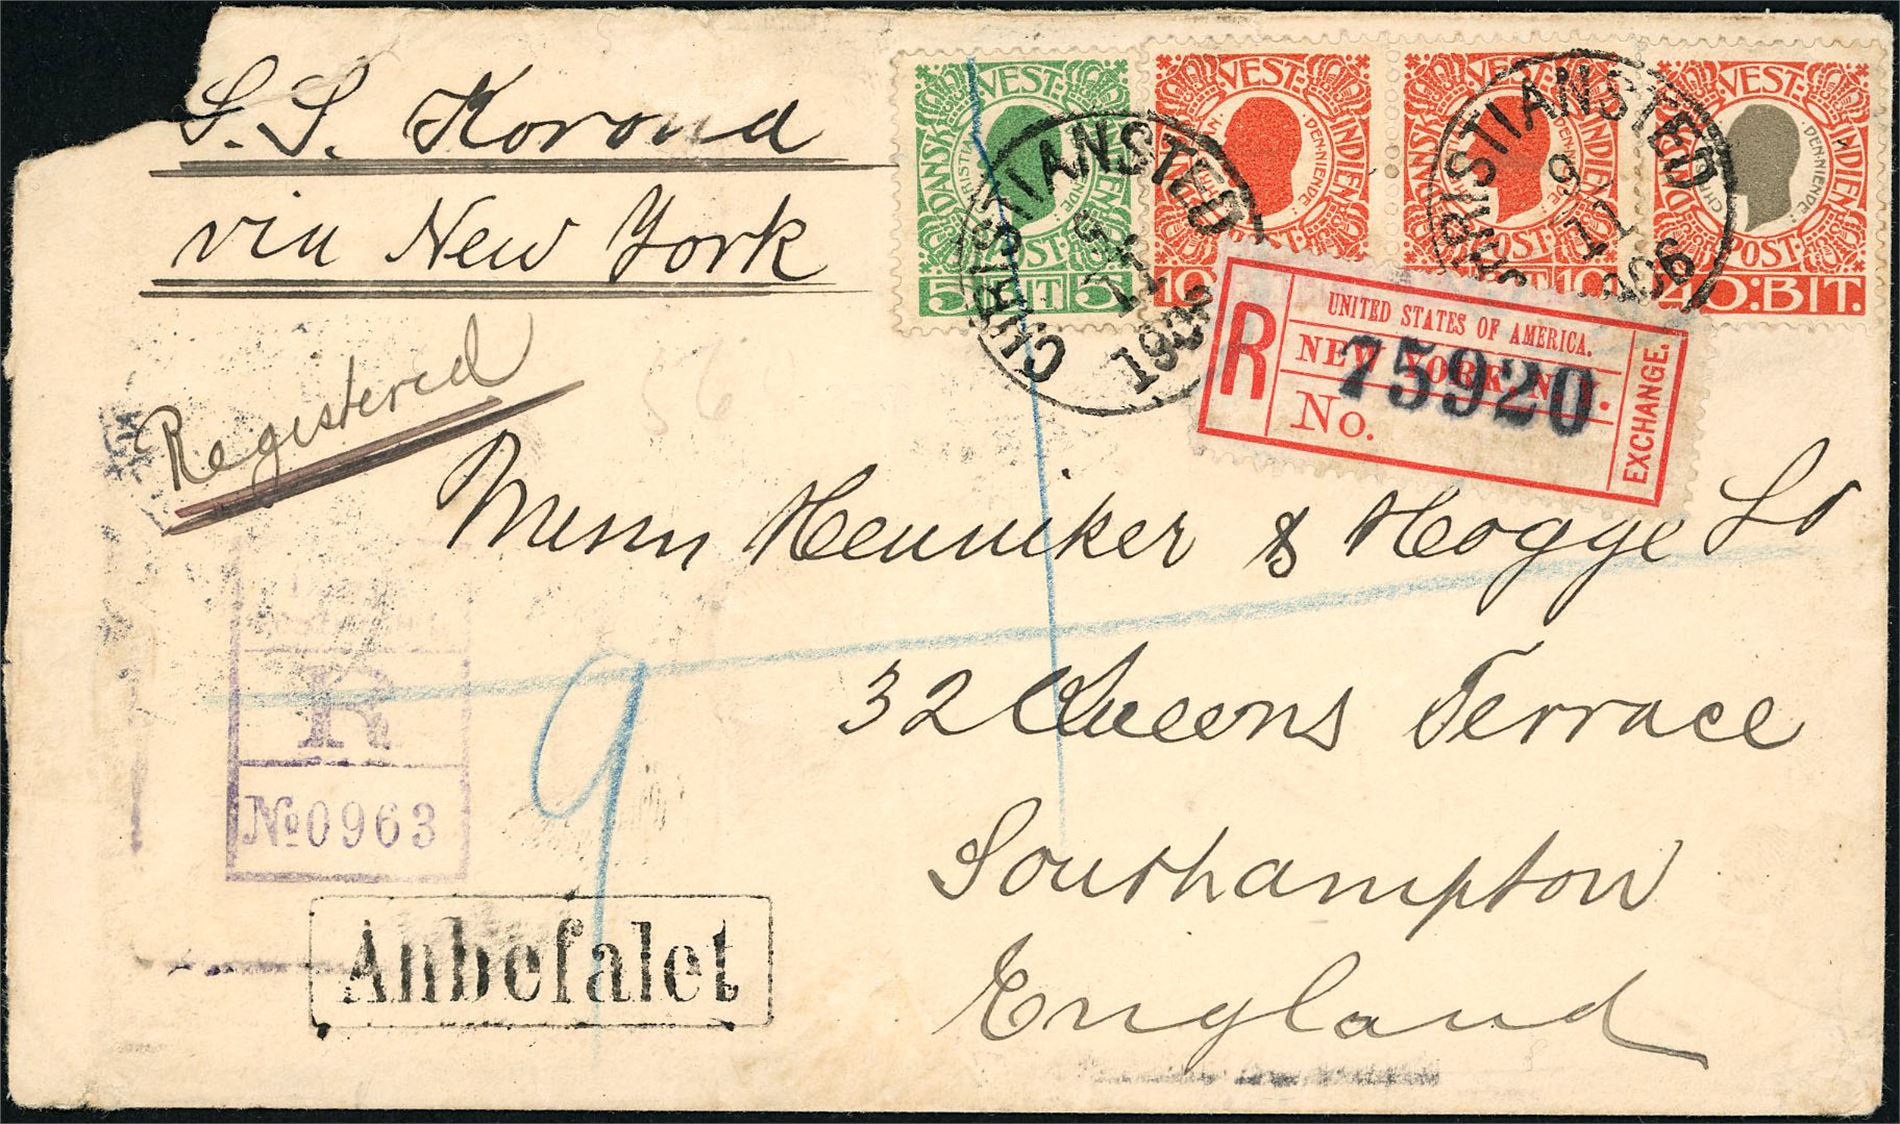 S. S. Korona
via New York
Registered
DANSK VESTINDIEN
POST
5 BIT 5
VEST INDIEN
POST
10
DANSK VESTINDIEN
POST
BIT 10
VEST INDIEN
POST
40:BIT.
CHRISTIANSTED
CHRISTIANSTED
9/11
1906
R
UNITED STATES OF AMERICA.
NEW YORK, N.Y.
No. 75920
EXCHANGE.
Messrs Henniker & Hogge Ld
32 Queens Terrace
Southampton
England
9
R
No 0963
Anbefalet